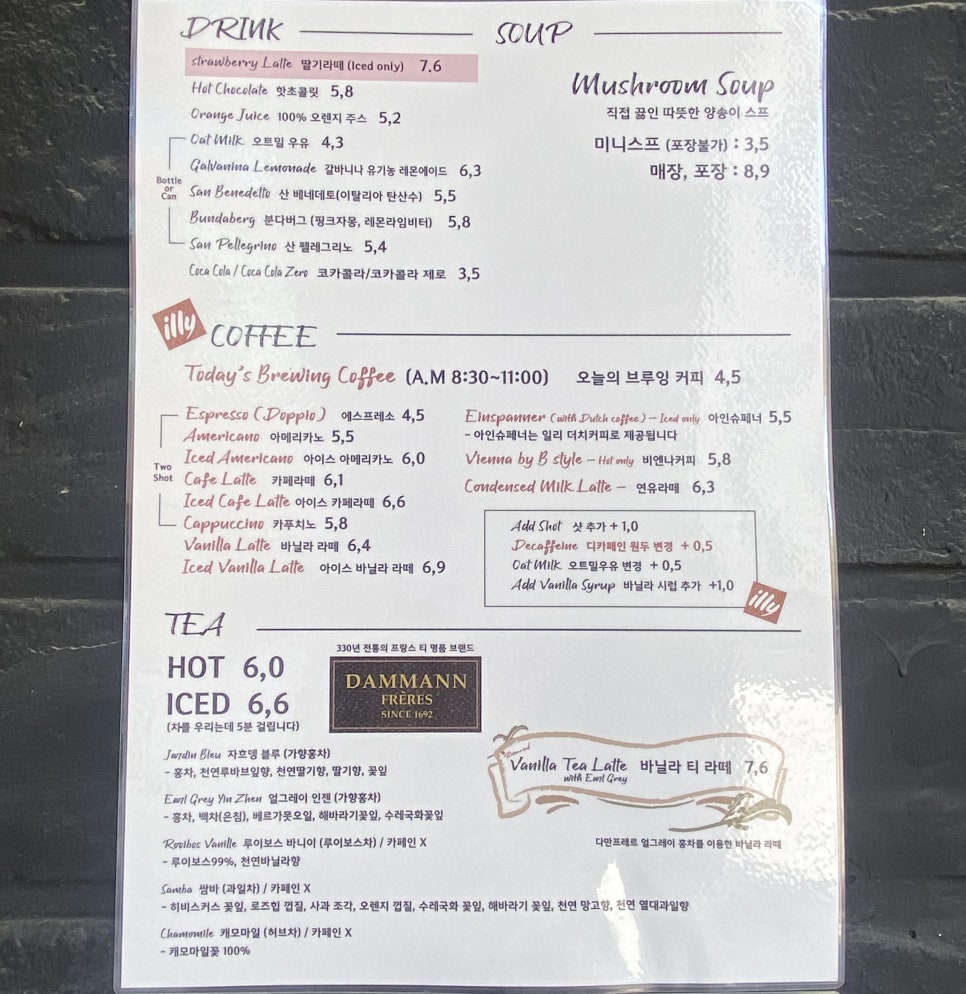 DRINK
strawberry Latte 딸기라떼 (Iced only) 7.6
Hot Chocolate 핫초콜릿 5,8
Orange Juice 100% 오렌지 주스 5,2
Oat Milk 오트밀 우유 4,3
Galvanina Lemonade 갈바니나 유기농 레몬에이드 6,3
San Benedetto 산 베네데토(이탈리아 탄산수) 5,5
Bundaberg 분다버그 (핑크자몽, 레몬라임비터) 5,8
San Pellegrino 산 펠레그리노 5,4
Bottle
or
Can
Coca Cola / Coca Cola Zero 코카콜라/코카콜라 제로 3,5
SOUP
Mushroom Soup
직접 끓인 따뜻한 양송이 스프
미니스프 (포장불가) : 3,5
매장, 포장 : 8,9
illy
COFFEE
Today's Brewing Coffee (A.M 8:30~11:00) 오늘의 브루잉 커피 4,5
Espresso (Doppio) 에스프레소 4,5
Americano 아메리카노 5,5
Iced Americano 아이스 아메리카노 6,0
Cafe Latte 카페라떼 6,1
Iced Cafe Latte 아이스 카페라떼 6,6
Cappuccino 카푸치노 5,8
Two
Shot
Vanilla Latte 바닐라 라떼 6,4
Iced Vanilla Latte 아이스 바닐라 라떼 6,9
Einspanner (with Dutch coffee) - Iced only 아인슈페너 5,5
- 아인슈페너는 일리 더치커피로 제공됩니다
Vienna by B style - Hot only 비엔나커피 5,8
Condensed Milk Latte - 연유라떼 6,3
Add Shot 샷 추가 + 1,0
Decaffeine 디카페인 원두 변경 + 0,5
Oat Milk 오트밀우유 변경 + 0,5
Add Vanilla Syrup 바닐라 시럽 추가 +1,0
illy
TEA
HOT 6,0
ICED 6,6
(차를 우리는데 5분 걸립니다)
330년 전통의 프랑스 티 명품 브랜드
DAMMANN
FRÈRES
SINCE 1692
Jardin Bleu 자흐뎅 블루 (가향홍차)
- 홍차, 천연루바브일향, 천연딸기향, 딸기향, 꽃잎
Earl Grey Yin Zhen 얼그레이 인젠 (가향홍차)
- 홍차, 백차(은침), 베르가못오일, 해바라기꽃잎, 수레국화꽃잎
Rooibos Vanille 루이보스 바니이 (루이보스차) / 카페인 X
- 루이보스99%, 천연바닐라향
Samba 쌈바 (과일차) / 카페인 X
- 히비스커스 꽃잎, 로즈힙 껍질, 사과 조각, 오렌지 껍질, 수레국화 꽃잎, 해바라기 꽃잎, 천연 망고향, 천연 열대과일향
Chamomile 캐모마일 (허브차) / 카페인 X
- 캐모마일꽃 100%
Vanilla Tea Latte 바닐라 티 라떼 7,6
with Earl Grey
다만프레르 얼그레이 홍차를 이용한 바닐라 라떼